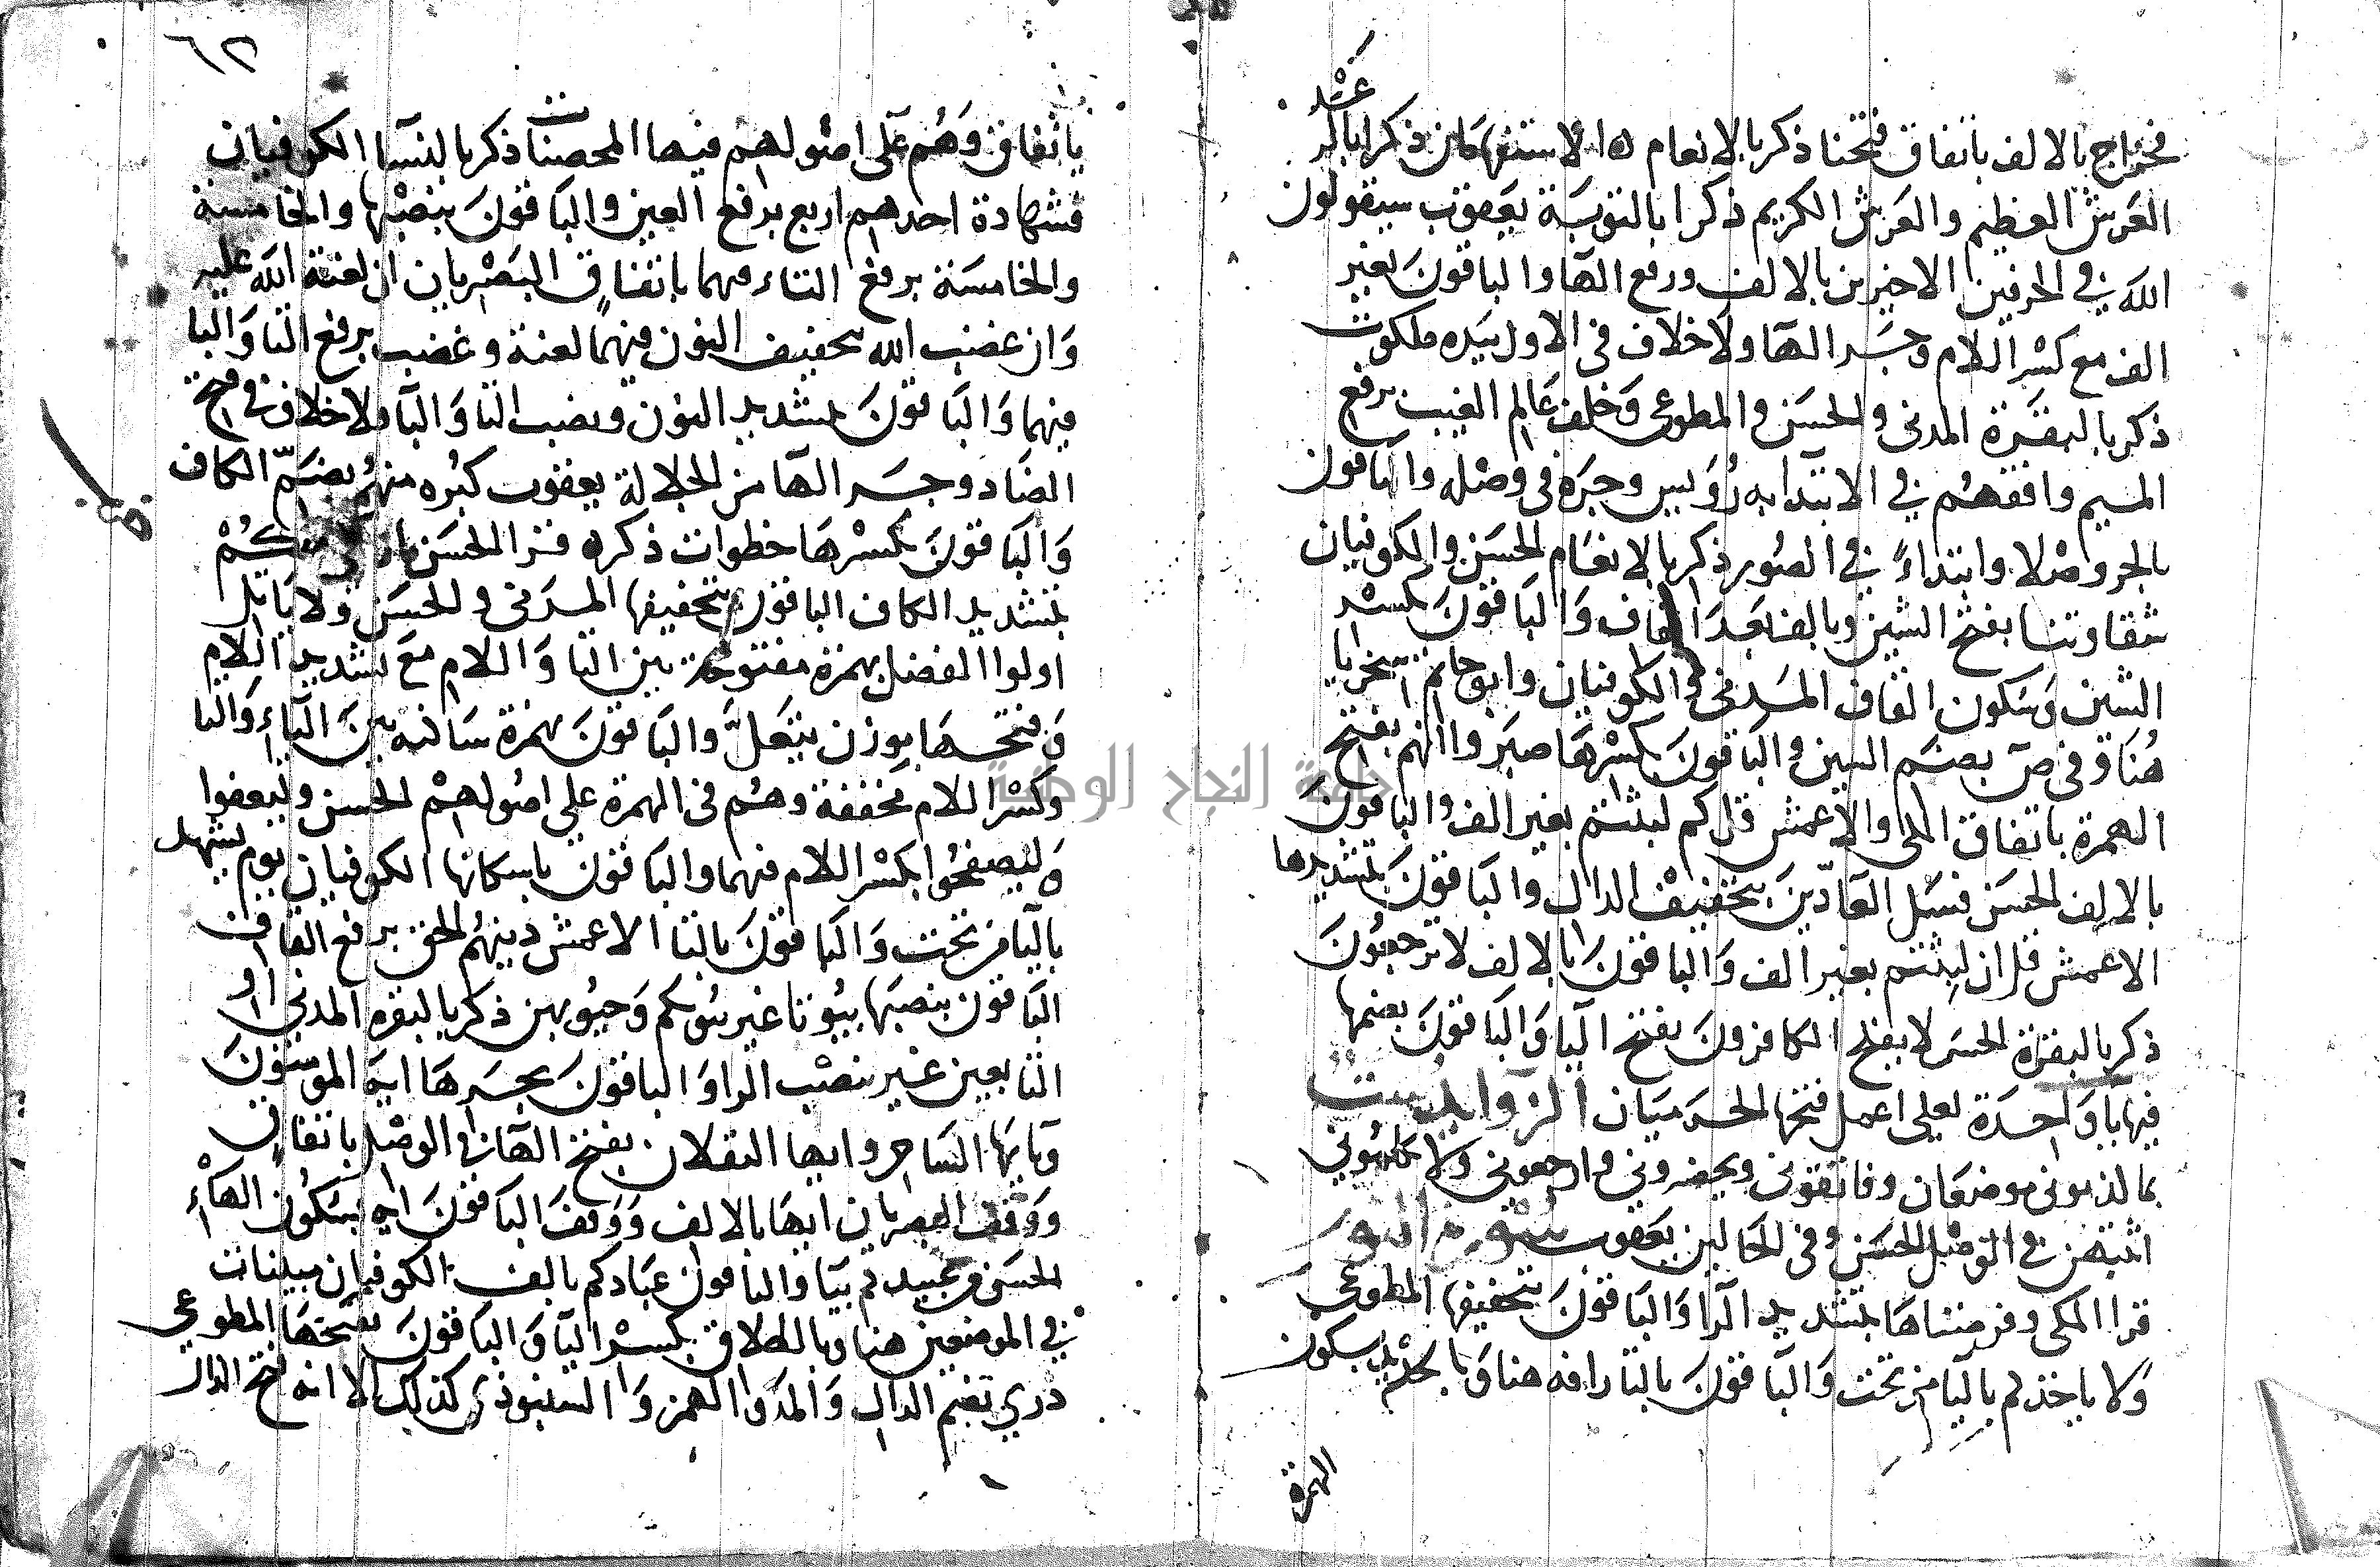 عند
فخراج بالالف باتفاق فتحنا ذكر بالانعام ه الاستفهامان ذكرا بالر
العرش العظيم والعرش الكريم ذكرا بالتوبة يعقوب سيقولون
الله في الحرفين الاخيرين بالالف ورفع الها والباقون بغير
الف مع كسر اللام وجر الها ولا خلاف في الاول بيده ملكوت
ذكر بالبقرة المدني والحسن والمطوعي وخلف عالم الغيب برفع
الميم وافقهم في الابتدا به رويس وجره في وصله والباقون
بالجر وصلا وابتداء في الصور ذكر بالانعام الحسن والكوفيان
شقاوتنا بفتح الشين وبالف بعد القاف والباقون بكسر
الشين وسكون القاف المدني والكوفيان وابو حاتم سخريا
هنا وفي ص بضم السين والباقون بكسرها صبروا انهم بفتح
الهمزة باتفاق المكي والاعمش قل كم لبثتم بغير الف والباقون
بالالف الحسن فسل العادين بتخفيف الدال والباقون بتشديدها
الاعمش قل ان لبثتم بغير الف والباقون بالالف لا ترجعون
ذكر بالبقرة الحسن لا يفلح الكافرون بفتح اليا والباقون بضمها
فيها يا واحدة لعلي اعمل فتحها الحرميان الزوايد ست
بما كذبوني موضعان وفاتقوني ويحضروني وارجعوني ولا تكلموني
اثبتهن في الوصل الحسن وفي الحالين يعقوب سورة النور
قرا المكي وفرضناها بتشديد الرا والباقون بتخفيفها المطوعي
ولا ياخذكم باليا من تحت والباقون بالتا رافه هنا وبالحديد بسكون
الهمزة
٦٢
باتفاق وهم على اصولهم فيها المحصنات ذكر بالنسا الكوفيان
فشهادة احدهم اربع برفع العين والباقون بنصبها والخامسة
والخامسة برفع التاء فيهما باتفاق البصريان ان لعنة الله عليه
وان غضب الله بتخفيف النون فيهما لعنة وغضب برفع التا والبا
فيهما والباقون بتشديد النون ونصب التا والبا ولا خلاف في فتح
الضاد وجر الها من الجلالة يعقوب كبره منهم بضم الكاف
والباقون بكسرها خطوات ذكره قرا الحسن ما زكى منكم
بتشديد الكاف الباقون بتخفيفها المدني والحسن ولا ياتل
اولوا الفضل بهمزة مفتوحة بين التا واللام مع تشديد اللام
وفتحها بوزن يتعل والباقون بهمزة ساكنه بين الياء والتا
وكسر اللام مخففة وهم في الهمزة على اصولهم الحسن وليعفوا
وليصفحوا بكسر اللام فيهما والباقون باسكانها الكوفيان يوم يشهد
باليا من تحت والباقون بالتا الاعمش دينهم الحق برفع القاف
الباقون بنصبها بيوتا غير بيوتكم وجيوبهن ذكر بالبقره المدني او
التابعين غير بنصب الرا والباقون بجرها ايه المومنون
ويايها الساحر وايها الثقلان بفتح الها في الوصل باتفاق
ووقف البصريان ايها بالالف ووقف الباقون ايه بسكون الهاء
الحسن من عبيدكم بيا والباقون عبادكم بالف الكوفيان مبينات
في الموضعين هنا وبالطلاق بكسر اليا والباقون بفتحها المطوعي
دري بضم الدال والمد والهمز والشنبوذي كذلك الا انه فتح الدال
جامعة النجاح الوطنية